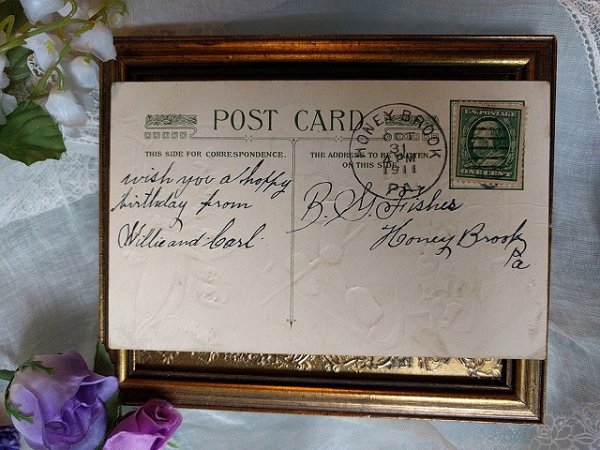 POST CARD
THIS SIDE FOR CORRESPONDENCE.
THE ADDRESS TO BE WRITTEN
ON THIS SIDE
HONEY BROOK
OCT
31
PM
1911
PA.
U.S. POSTAGE
wish you a happy
birthday from
Willie and Carl.
B. G. Fisher
Honey Brook
Pa